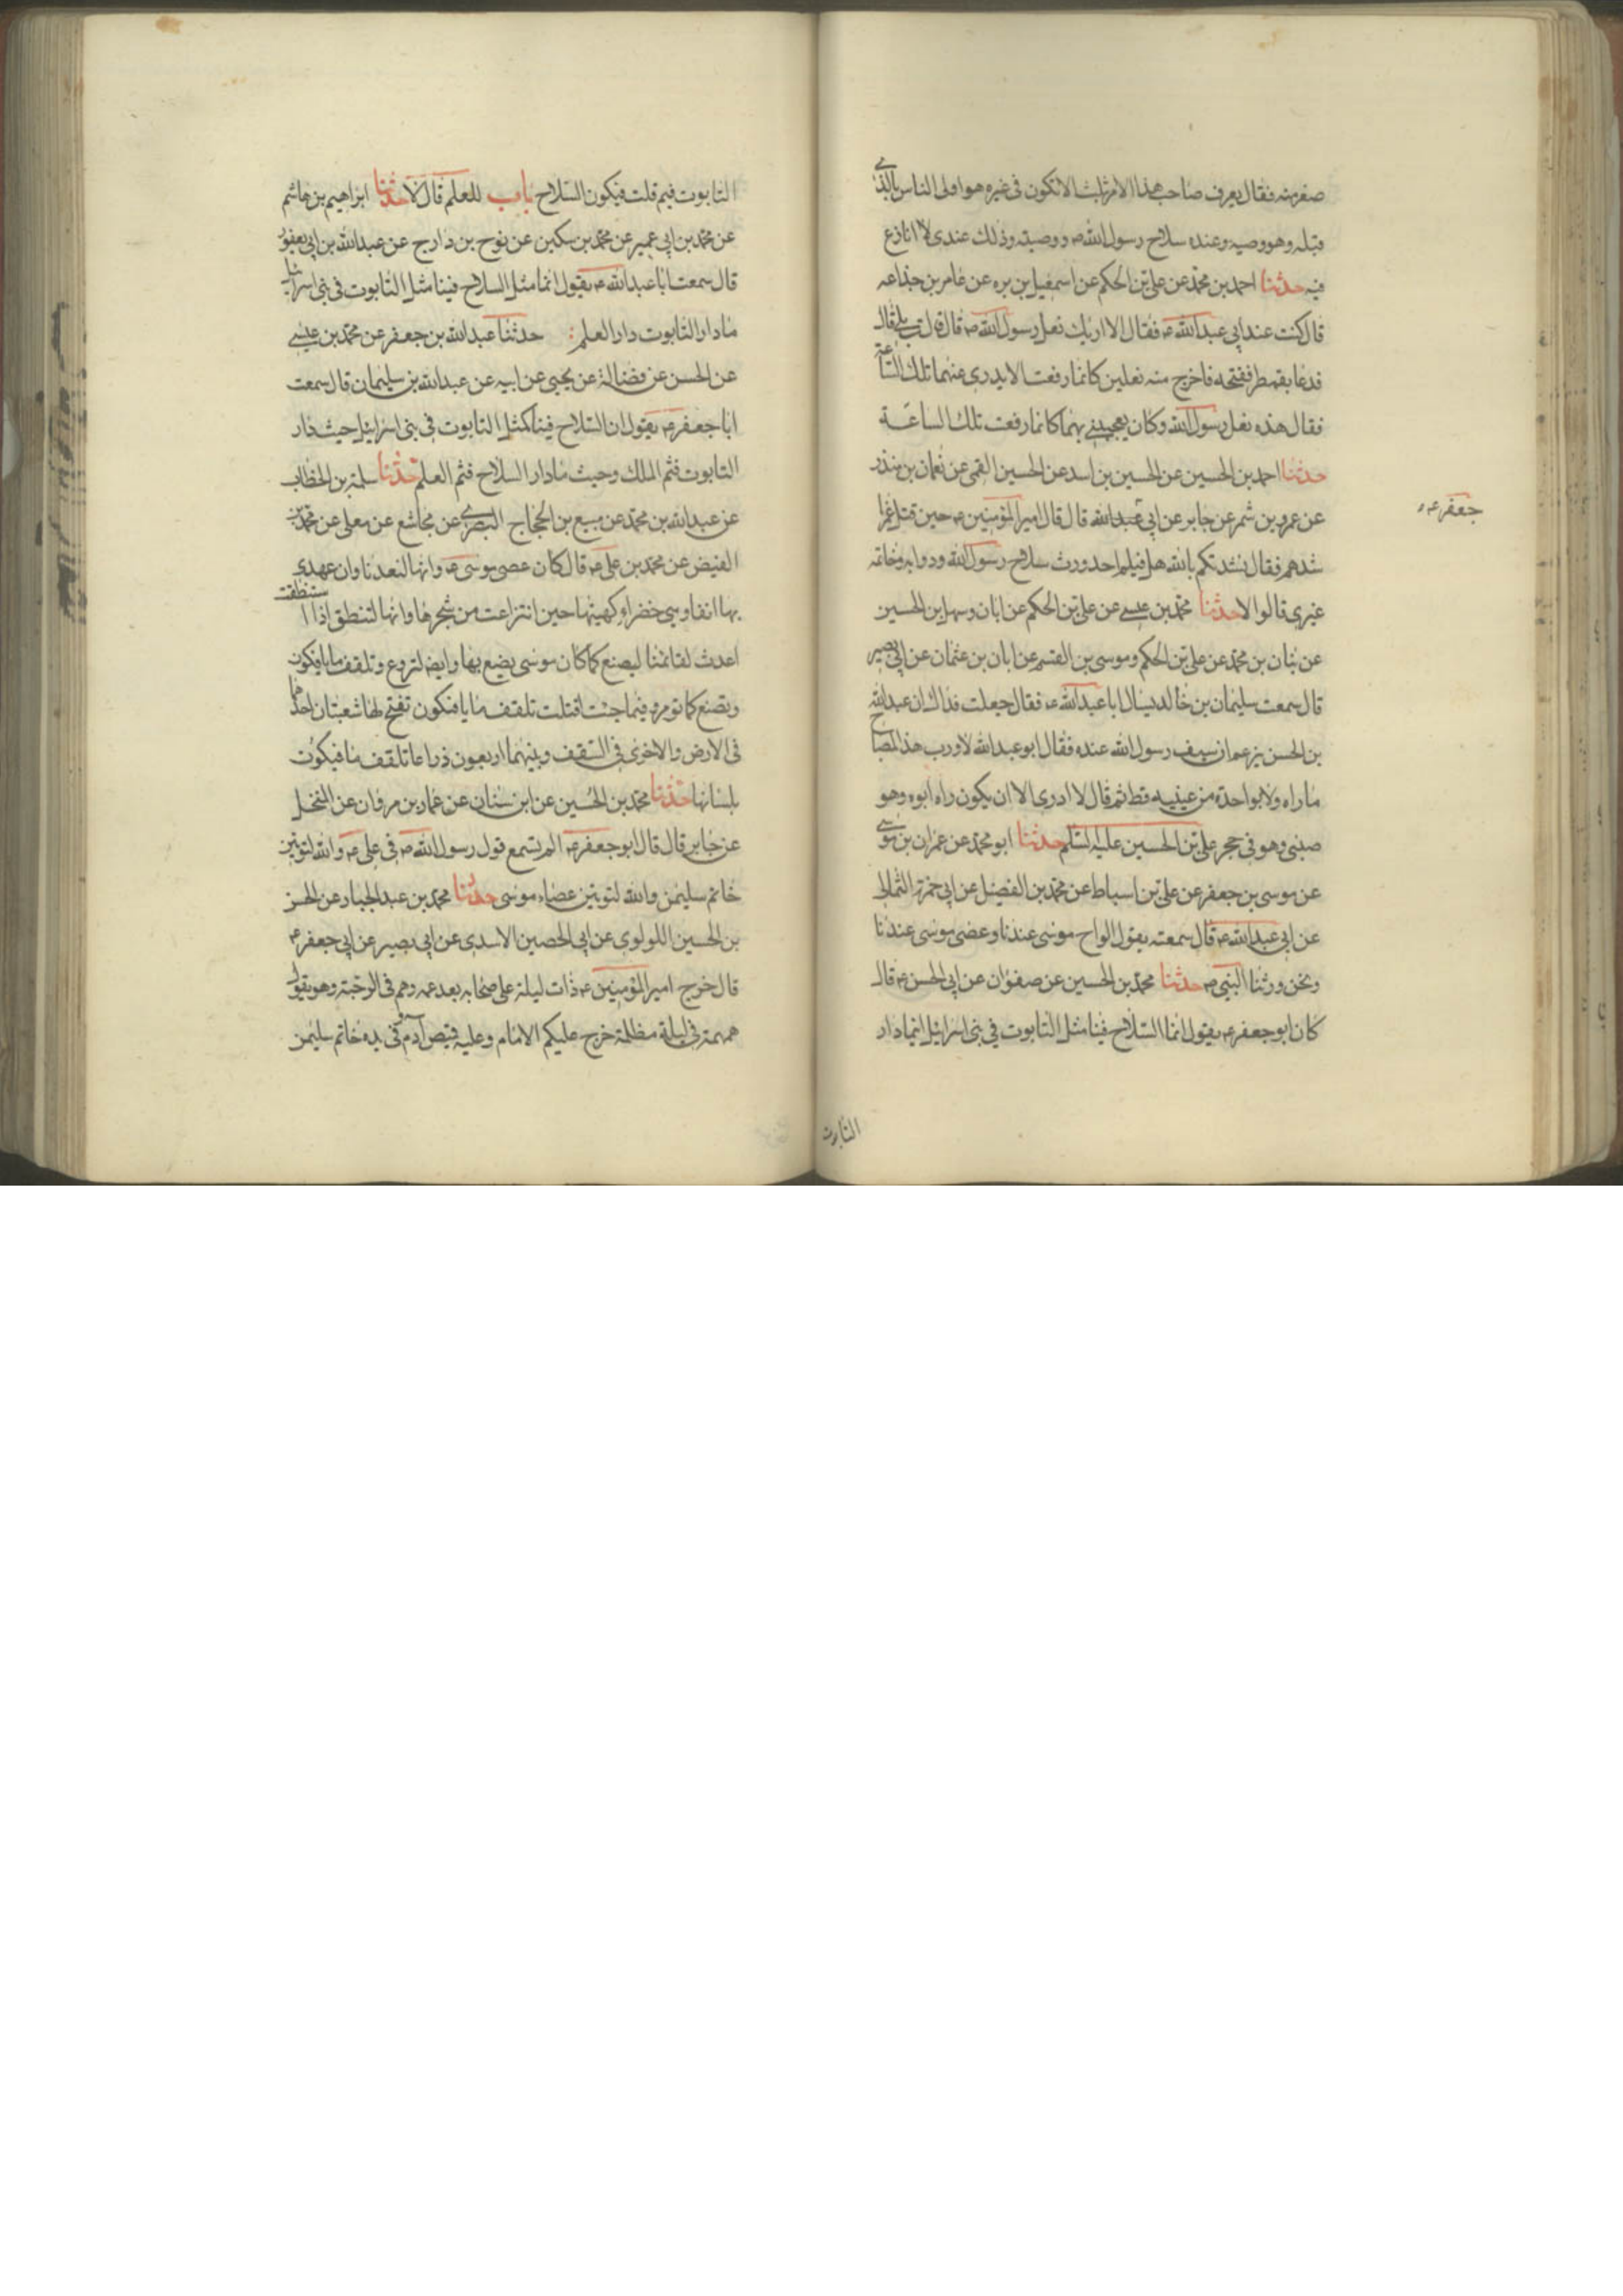 صغر منه فقال يعرف صاحب هذا الامر بثلث لا تكون فى غيره هو اولى الناس بالذى
قبله وهو وصيه وعنده سلاح رسول الله ص ووصيته وذلك عندى لا انازع
فيه حدثنا احمد بن محمد عن على بن الحكم عن اسمعيل بن بره عن عامر بن جذاعه
قال كنت عند ابى عبد الله ع فقال الا اريك نعل رسول الله ص قال قلت بلى قال
فدعا بقمطر ففتحه فاخرج منه نعلين كانما رفعت الايدى عنهما تلك الساعة
فقال هذه نعل رسول الله وكان يعجبنى بهما كانما رفعت تلك الساعة
حدثنا احمد بن الحسين عن الحسين بن اسد عن الحسين القمى عن نعمان بن منذر
عن عمرو بن شمر عن جابر عن ابى عبد الله قال قال امير المؤمنين ع حين قتل عمر
جعفر ع
نشدهم فقال نشدتكم بالله هل فيكم احد ورث سلاح رسول الله ودوابه وخاتمه
غيرى قالوا لا حدثنا محمد بن عيسى عن على بن الحكم عن ابان وسهل بن الحسين
عن بنان بن محمد عن على بن الحكم وموسى بن القسم عن ابان بن عثمان عن ابى بصير
قال سمعت سليمان بن خالد يسال ابا عبد الله ع فقال جعلت فداك ان عبد الله
بن الحسن يزعم ان سيف رسول الله عنده فقال ابو عبد الله لا ورب هذا المصباح
ما راه ولا بواحدة من عينيه قط ثم قال لا ادرى الا ان يكون راه ابوه وهو
صبى وهو فى حجر على بن الحسين عليه السلم حدثنا ابو محمد عن عمران بن موسى
عن موسى بن جعفر عن على بن اسباط عن محمد بن الفضيل عن ابى حمزة الثمالى
عن ابى عبد الله ع قال سمعته يقول الواح موسى عندنا وعصى موسى عندنا
ونحن ورثنا النبى ص حدثنا محمد بن الحسين عن صفوان عن ابى الحسن ع قال
كان ابو جعفر ع يقول انما السلاح فينا مثل التابوت فى بنى اسرائيل اينما دار
التابوت
التابوت فيم قلت فيكون السلاح باب للعلم قال لا حدثنا ابراهيم بن هاشم
عن محمد بن ابى عمير عن محمد بن سكين عن نوح بن دارج عن عبد الله بن ابى يعفور
قال سمعت ابا عبد الله ع يقول انما مثل السلاح فينا مثل التابوت فى بنى اسرائيل
ما دار التابوت دار العلم حدثنا عبد الله بن جعفر عن محمد بن عيسى
عن الحسن عن فضالة عن يحيى عن ابيه عن عبد الله بن سليمان قال سمعت
ابا جعفر ع يقول ان السلاح فينا كمثل التابوت فى بنى اسرائيل حيث دار
التابوت فثم الملك وحيث ما دار السلاح فثم العلم حدثنا سلمة بن الخطاب
عن عبد الله بن محمد عن منيع بن الحجاج البصرى عن مجاشع عن معلى عن محمد بن
الفيض عن محمد بن على ع قال كان عصى موسى ع وانها لتعندنا وان عهدى
بها انفا وهى خضراء كهيئتها حين انتزعت من شجرها وانها لتنطق اذا استنطقت
اعدت لقائمنا ليصنع كما كان موسى يصنع بها وايضا لتروع وتلقف ما يافكون
وتصنع كما تومر وفيما جئت اقتلت تلقف ما يافكون تفتح لها شعبتان احدهما
فى الارض والاخرى فى السقف وبينهما اربعون ذراعا تلقف ما فيكون
بلسانها حدثنا محمد بن الحسين عن ابن سنان عن عمار بن مروان عن المنخل
عن جابر قال قال ابو جعفر ع الم تسمع قول رسول الله ص فى على ع والله لتوتين
خاتم سليمن والله لتوتين عصاء موسى حدثنا محمد بن عبد الجبار عن الحسن
بن الحسين اللولوى عن ابى الحصين الاسدى عن ابى بصير عن ابى جعفر ع
قال خرج امير المؤمنين ع ذات ليلة على اصحابه بعد عمه وهم فى الرحبة وهو يقول
همهمة فى ليلة مظلمة خرج عليكم الامام وعليه قميص آدم وفى يده خاتم سليمن